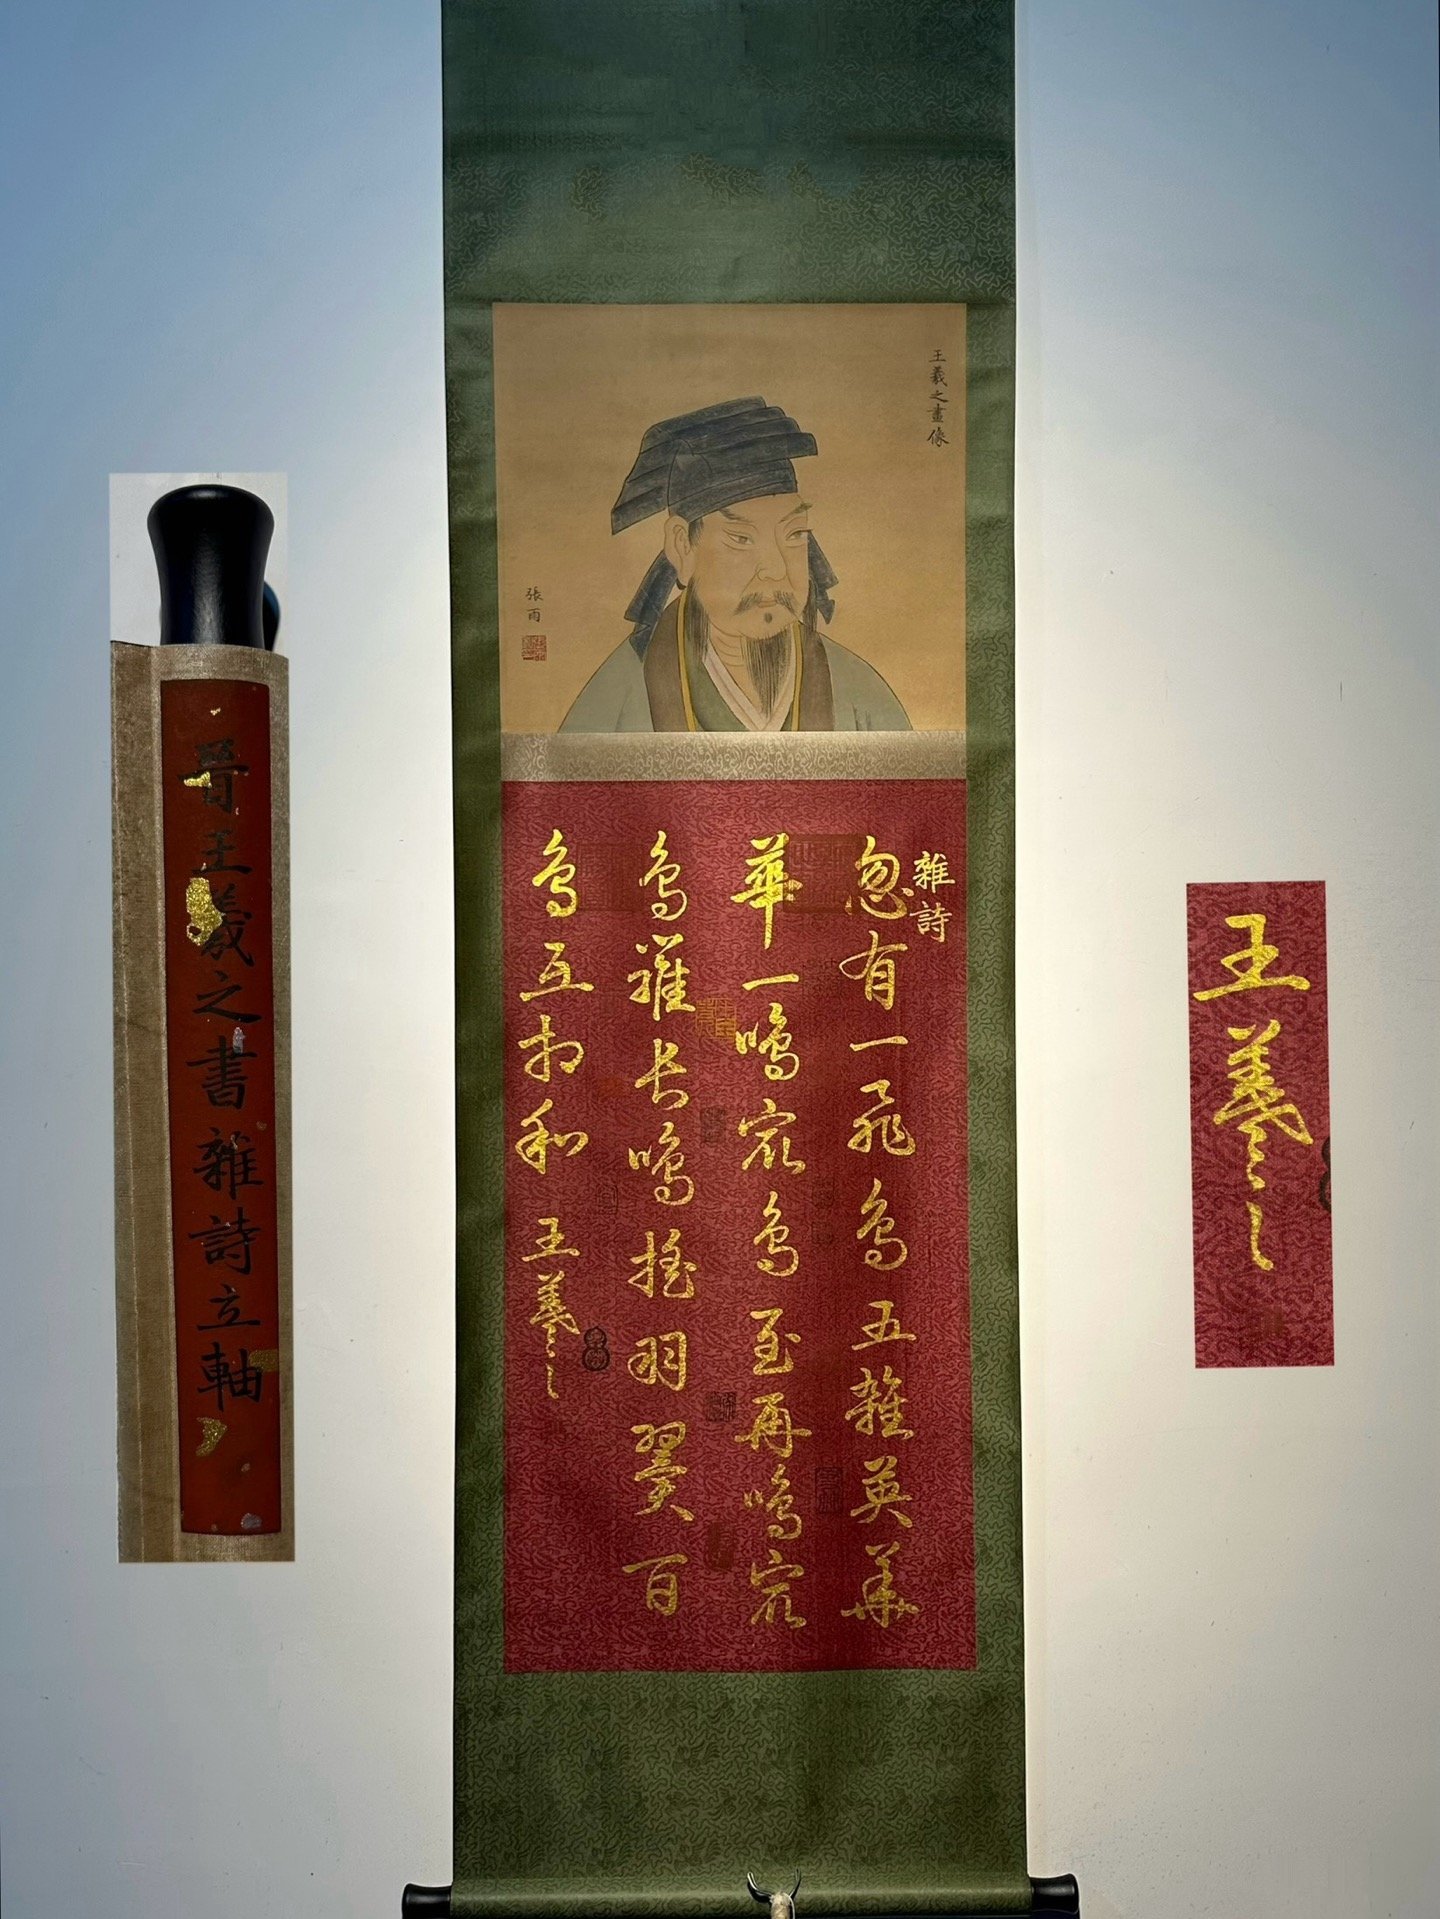 王羲之畫像
張雨
雜詩
忽有一飛鳥五雜英華
華一鳴眾鳥至再鳴眾
鳥羅長鳴搖羽翼百
鳥互相和
王羲之
晉王羲之書雜詩立軸
王羲之